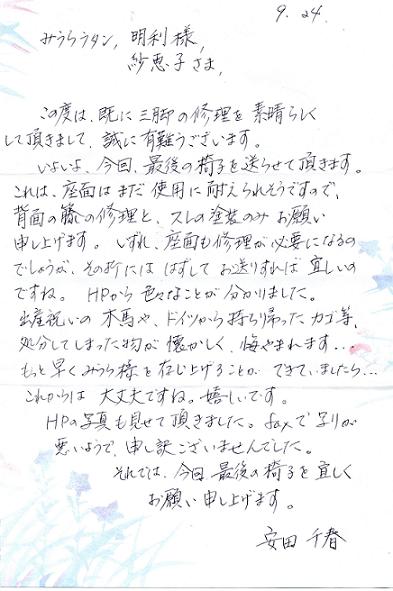 9. 24.
みうらラタン, 明利様,
紗恵子さま,
この度は、既に三脚の修理を素晴らしく
して頂きまして、誠に有難うございます。
いよいよ、今回、最後の椅子を送らせて頂きます。
これは、座面はまだ使用に耐えられそうですので、
背面の籐の修理と、スレの塗装のみお願い
申し上げます。いずれ、座面も修理が必要になるの
でしょうが、その折にははずしてお送りすれば宜しいの
ですね。HPから色々なことが分かりました。
出産祝いの木馬や、ドイツから持ち帰ったカゴ等、
処分してしまった物が懐かしく、悔やまれます...
もっと早くみうら様を存じ上げることができていましたら...
これからは大丈夫ですね。嬉しいです。
HPの写真も見せて頂きました。faxで写りが
悪いようで、申し訳ございませんでした。
それでは、今回、最後の椅子を宜しく
お願い申し上げます。
安田 千春